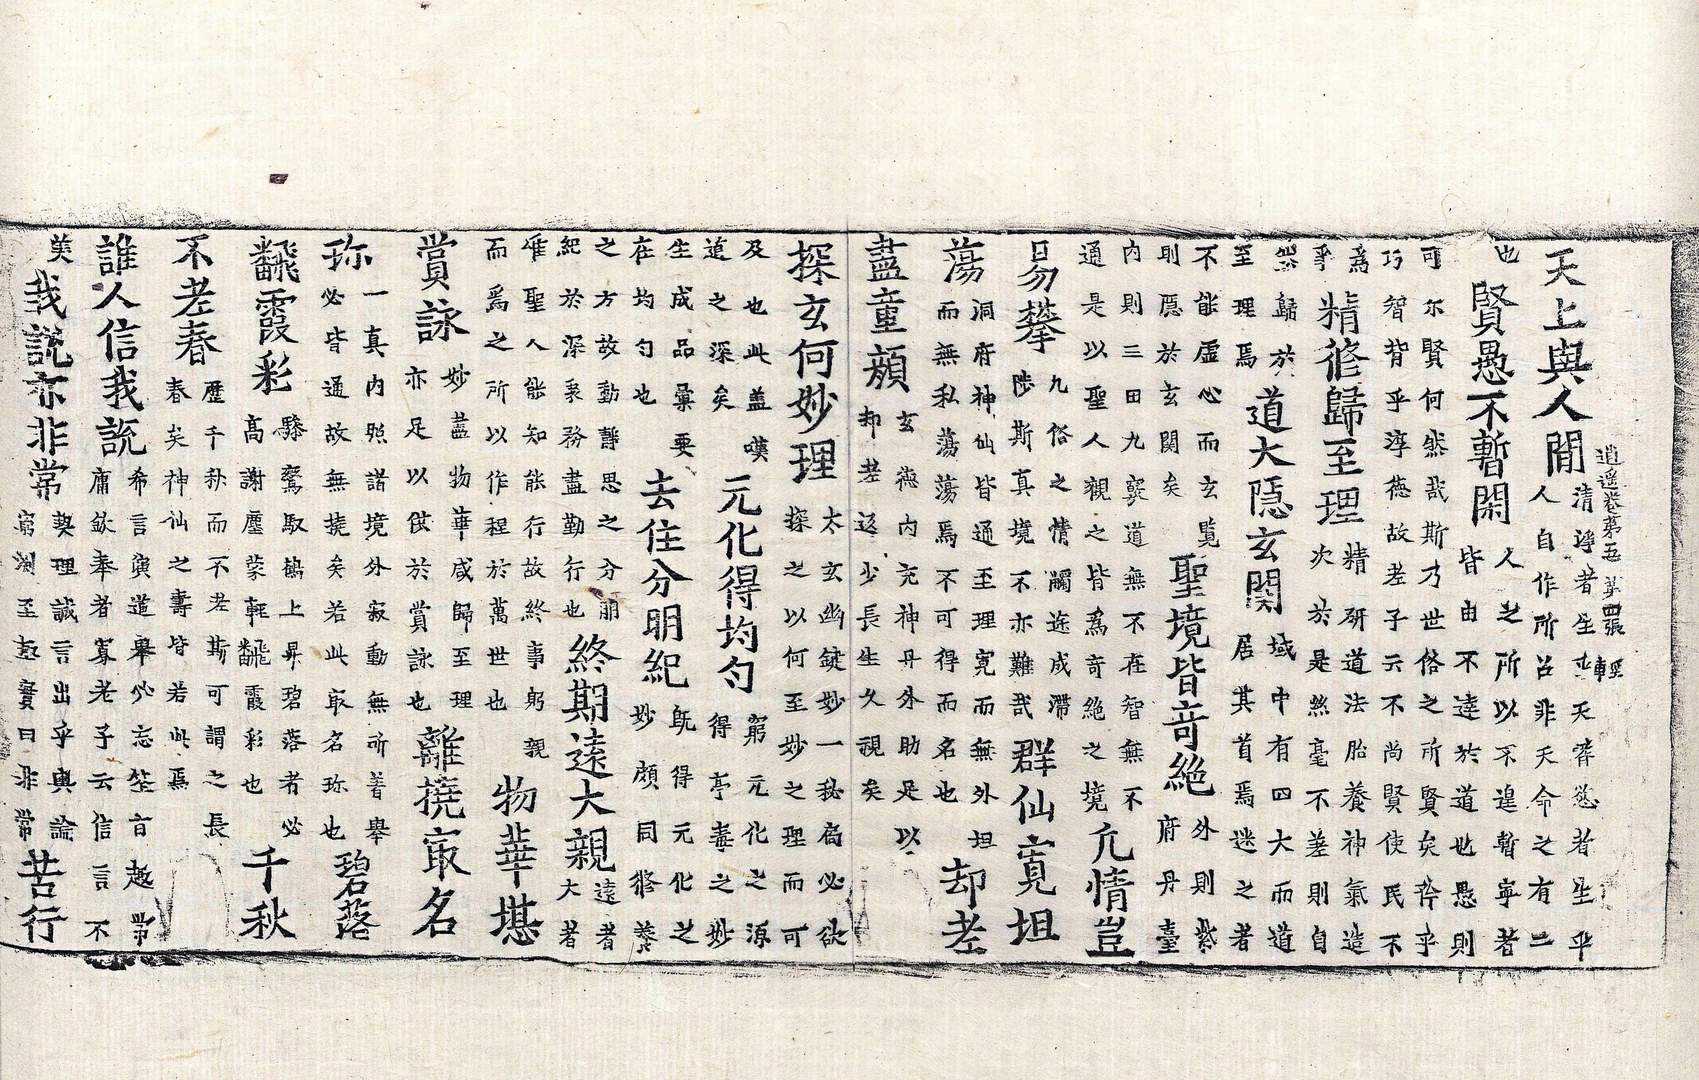 逍遥卷第五 第四張 輕
天上與人間清淨者生乎天嗜慾者生乎
人自作所召非天命之有二
也賢愚不暫閑人之所以不遑暫寧者
皆由不達於道也愚則
可尒賢何然哉斯乃世俗之所賢矣於乎
巧智背乎淳德故老子云不尚賢使民不
爲
爭精修歸至理精研道法胎養神氣造
次於是然毫不差則自
然歸於
至理焉道大隱玄關域中有四大而道
居其首焉迷之者
不能虛心而玄覽
則隱於玄関矣聖境皆奇絕外則紫
府丹臺
內則三田九竅道無不在智無不
通是以聖人觀之皆爲奇絕之境凡情豈
易攀凡俗之情觸途成滯
陟斯真境不亦難哉群仙寬坦
蕩洞府神仙皆通至理寬而無外坦
而無私蕩蕩焉不可得而名也却老
盡童顔玄德內充神丹外助足以
却老返少長生久視矣
探玄何妙理太玄幽鍵妙一秘扃必欲
探之以何至妙之理而可
及也此盖嘆
道之深矣元化得均勻窮元化之源
得亭毒之妙
生成品彙要
在均勻也去住分明紀旣得元化之
妙頗同修養
之方故動靜思之分明
紀於深衷務盡勤行也終期遠大親遠者
大者
唯聖人能知能行故終事躬親
而爲之所以作程於萬世也物華堪
賞詠妙盖物華咸歸至理
亦足以供於賞詠也離撓寂名
珎一真內照諸境外寂動無所著舉
必皆通故無撓矣若此寂名珎也碧落
翻霞彩驂鸞馭鶴上昇碧落者必
高謝塵蒙輕翻霞彩也千秋
不老春歷千秋而不老斯可謂之長
春矣神仙之壽皆若此焉
誰人信我說希言演道舉必忘筌旨趣常
庸欽奉者寡老子云信言不
美我說亦非常契理誠言出乎輿論
窮測至極實曰非常苦行